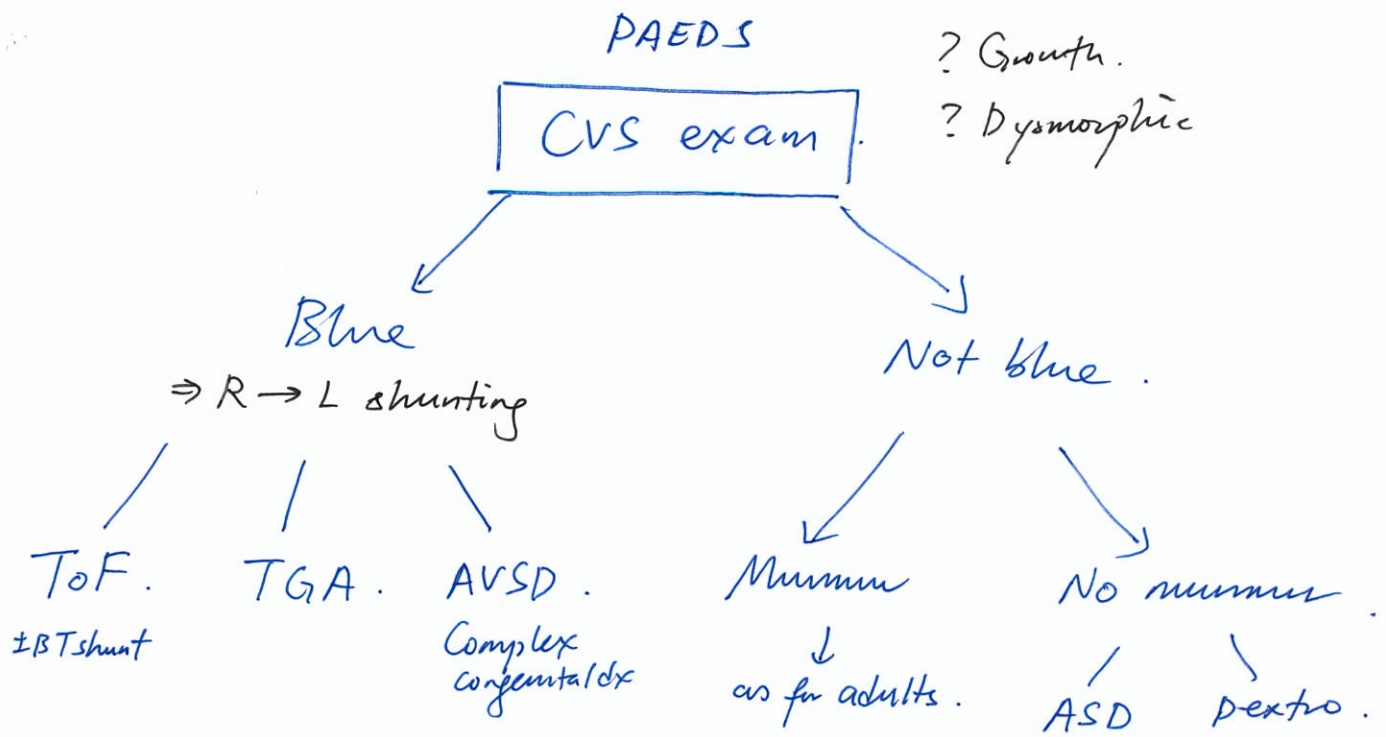 PAEDS
? Growth.
? Dysmorphic
CVS exam.
Blue
⇒ R → L shunting
Not blue.
ToF.
± BT shunt
TGA.
AVSD.
Complex
congenital dx
Murmur
↓
as for adults.
No murmur.
ASD
Dextro.